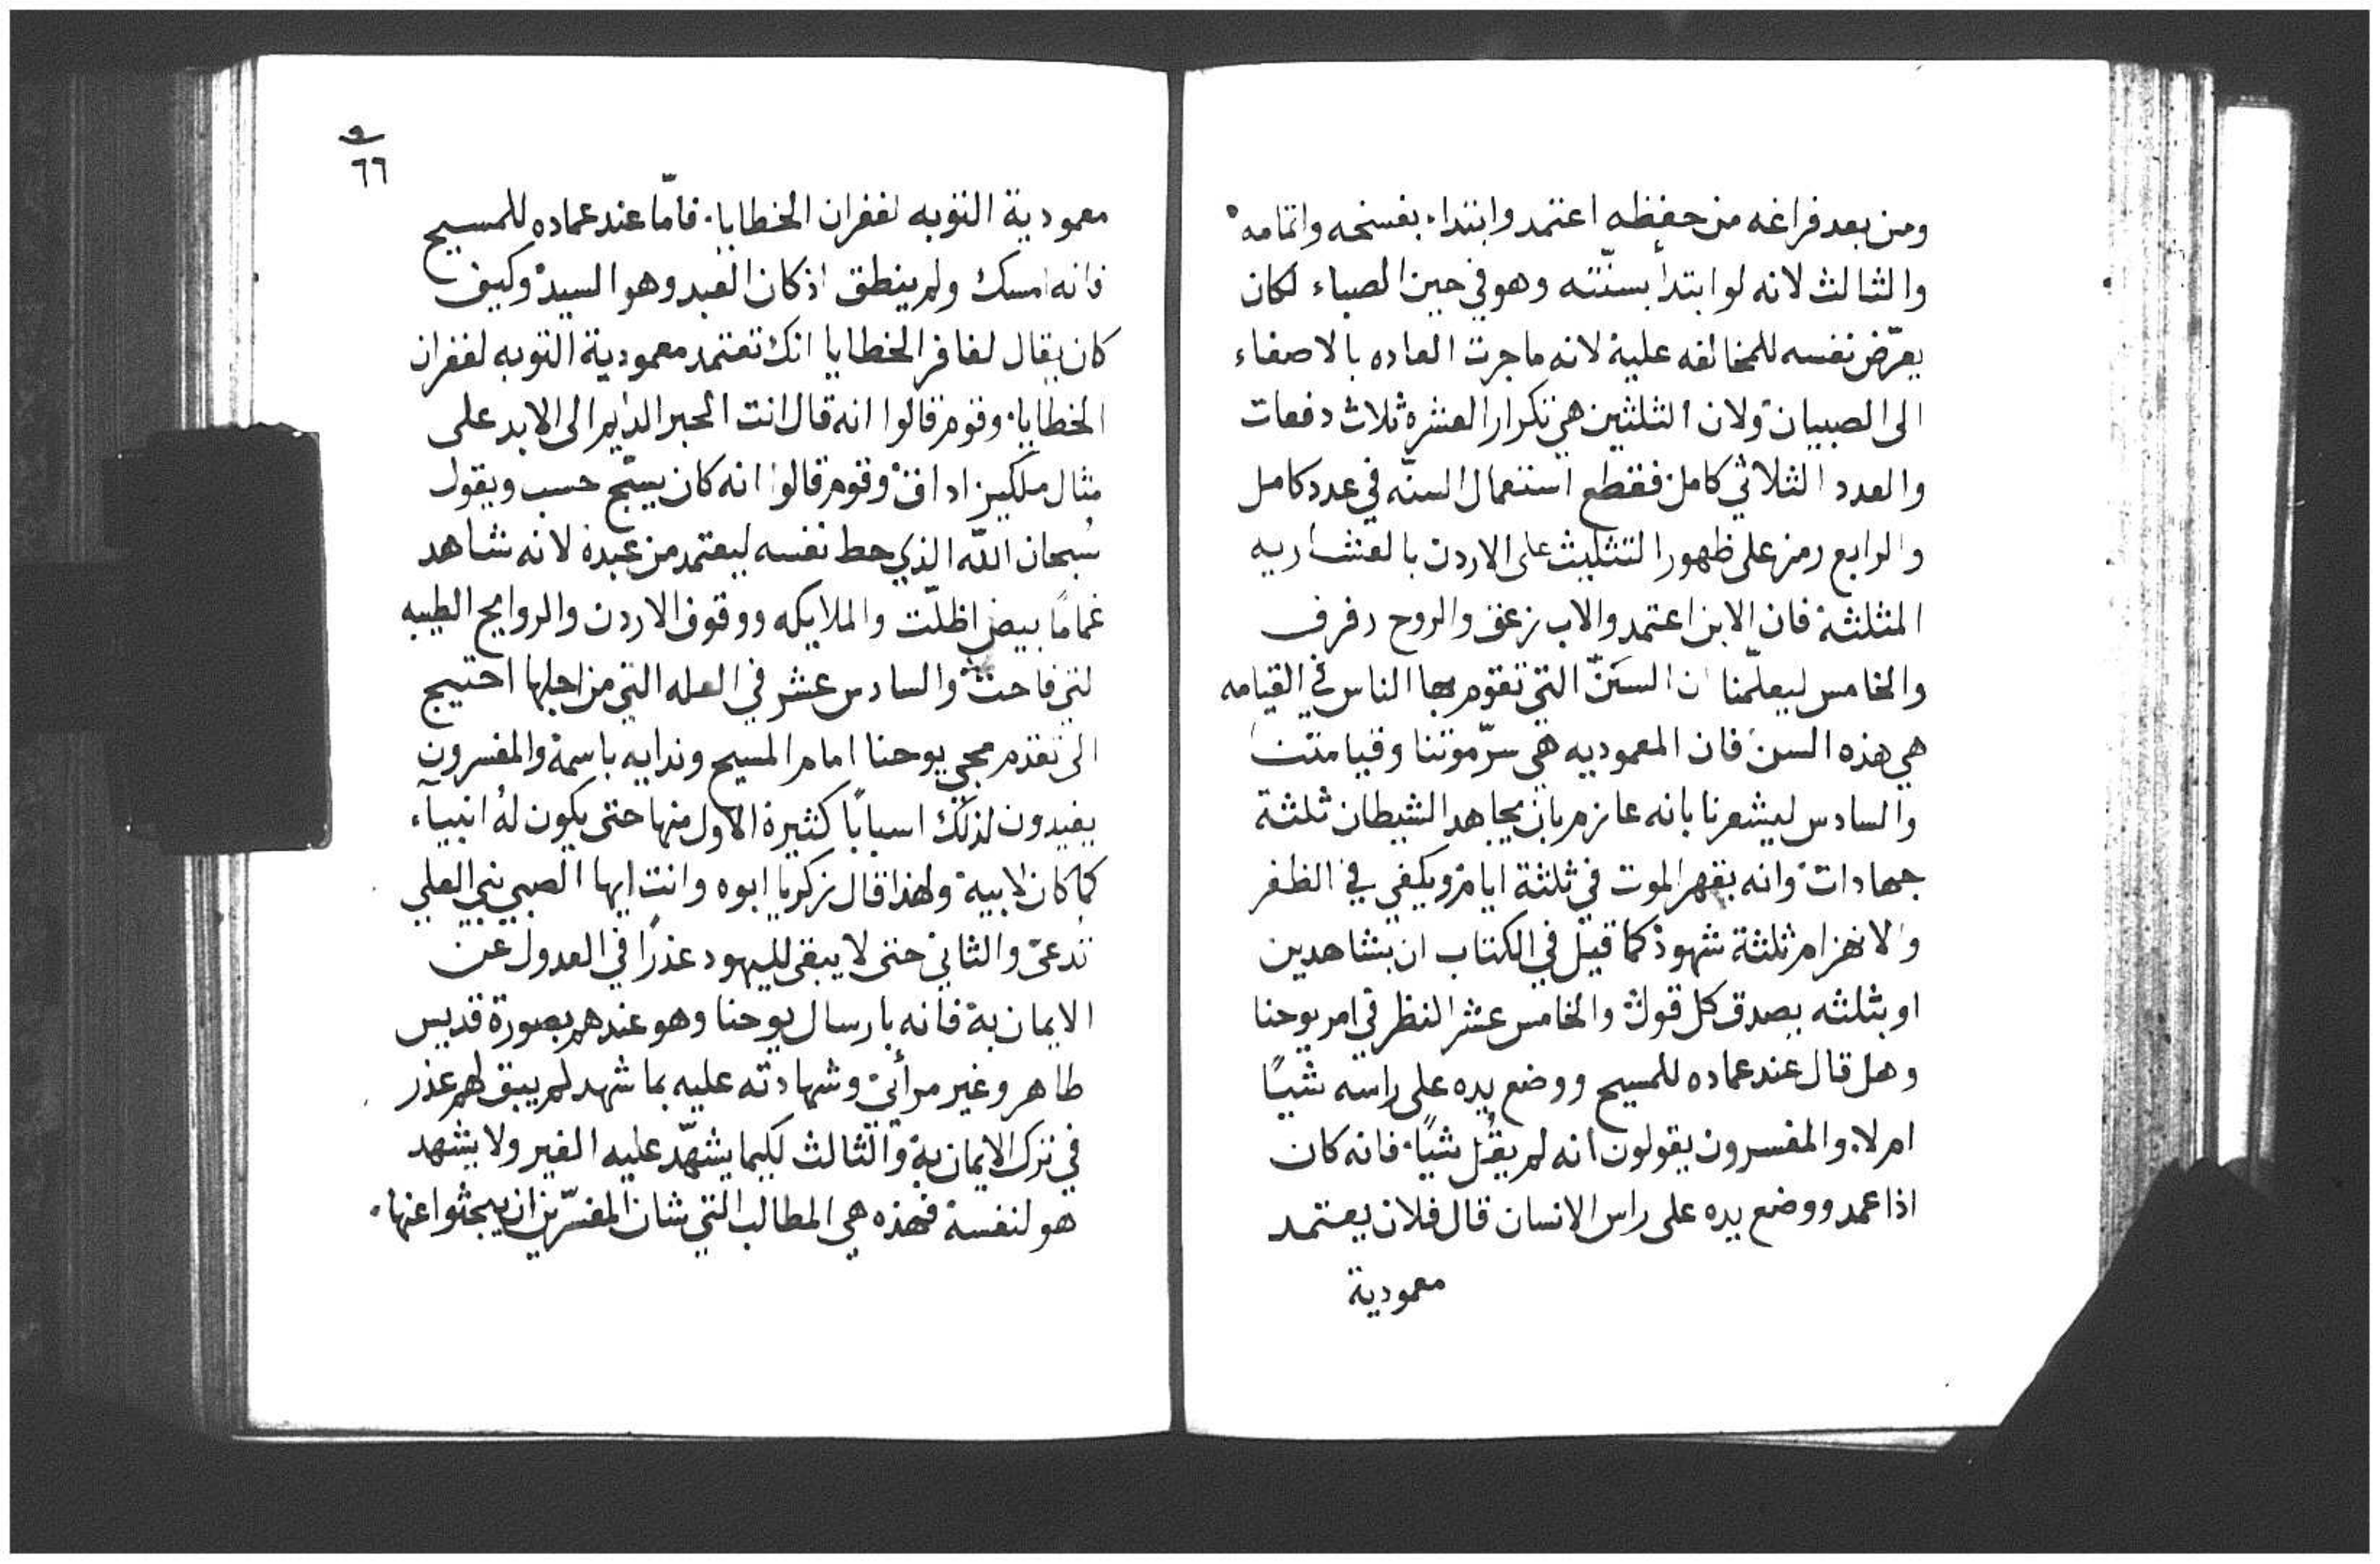 ومن بعد فراغه من حفظه اعتمد وابتداء بفسخه واتمامه
والثالث لانه لو ابتدأ بسنّته وهو في حين الصباء لكان
يعرّض نفسه للمخالفه عليه لانه ما جرت العاده بالاصغاء
الى الصبيان ولان الثلثين هي تكرار العشره ثلاث دفعات
والعدد الثلاثي كامل فقطع استعمال السنّه في عدد كامل
والرابع رمز على ظهور التثليث على الاردن بالعشاريه
المثلثة فان الابن اعتمد والاب زعق والروح رفرف
والخامس ليعلّمنا ان السنّ التي تقوم بها الناس في القيامه
هي هذه السن فان المعموديه هي سرّ موتنا وقيامتنا
والسادس ليشعرنا بانه عازم بان يجاهد الشيطان ثلثة
جهادات وانه يقهر الموت في ثلثة ايام ويكفي في الظفر
والانهزام ثلثة شهود كما قيل في الكتاب ان بشاهدين
او بثلثه يصدق كل قول والخامس عشر النظر في امر يوحنا
وهل قال عند عماده للمسيح ووضع يده على راسه شيًا
ام لا والمفسرون يقولون انه لم يقُل شيًا فانه كان
اذا عمد ووضع يده على راس الانسان قال فلان يعتمد
معمودية
٦٦
معمودية التوبه لغفران الخطايا فامّا عند عماده للمسيح
فانه امسك ولم ينطق اذ كان العبد وهو السيد وكيف
كان يقال لغافر الخطايا انك تعتمد معمودية التوبه لغفران
الخطايا وقوم قالوا انه قال انت الحبر الدايم الى الابد على
مثال ملكيزاداق وقوم قالوا انه كان يسبّح حسب ويقول
سُبحان الله الذي حط نفسه ليعتمد من عبده لانه شاهد
غمامًا بيض اظلّت والملايكه ووقوف الاردن والروايح الطيبه
لتي فاحت والسادس عشر في العله التي من اجلها احتيج
الى تقدم مجي يوحنا امام المسيح وندايه باسمه والمفسرون
يفيدون لذلك اسبابًا كثيرة الاول منها حتى يكون لهُ انبيآء
كما كان لابيه ولهذا قال زكريا ابوه وانت ايها الصبي نبي العلي
تُدعى والثاني حتى لا يبقى لليهود عذرًا في العدول عن
الايمان به فانه بارسال يوحنا وهو عندهم بصورة قديس
طاهر وغير مرأئي وشهادته عليه بما شهد لم يبق لهم عذر
في ترك الايمان به والثالث لكيما يشهّد عليه الغير ولا يشهد
هو لنفسه فهذه هي المطالب التي شان المفسّرين ان يبحثوا عنها